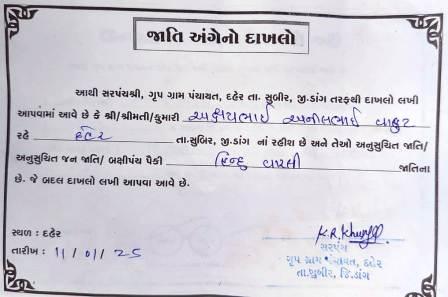 જાતિ અંગેનો દાખલો
આથી સરપંચશ્રી, ગૃપ ગ્રામ પંચાયત, દહેર તા. સુબિર, જી.ડાંગ તરફથી દાખલો લખી
આપવામાં આવે છે કે શ્રી/શ્રીમતી/કુમારી અક્ષયભાઈ અનીલભાઈ
રહે દહેર તા.સુબિર, જી.ડાંગ નાં રહીશ છે અને તેઓ અનુસુચિત જાતિ/
અનુસુચિત જન જાતિ/ બક્ષીપંચ પૈકી હિન્દુ વારલી જાતિના
છે. જે બદલ દાખલો લખી આપવા આવે છે.
સ્થળ : દહેર
તારીખ : 11/01/25
K.R.
સરપંચ
ગૃપ ગ્રામ પંચાયત, દહેર
તા.સુબીર, જિ.ડાંગ